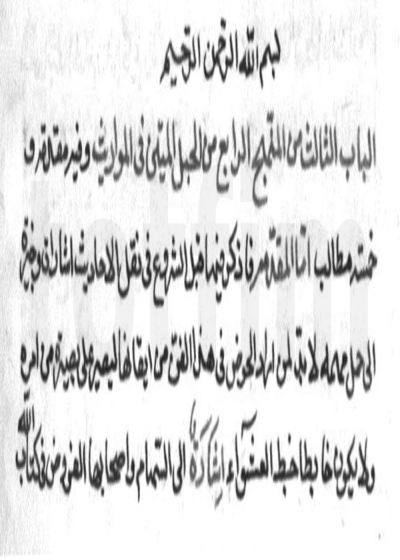 بسم الله الرحمن الرحيم
الباب الثالث من المنهج الرابع من الحبل المتين في المواريث وفيه مقدمة و
خمسة مطالب اما المقدمة فاذكر فيها قبل الشروع في نقل الاحاديث اشارات وجيزة
الى جمل مهمة لا بد لمن اراد الخوض في هذا الفن من ايقانها ليصير على بصيرة من امره
ولا يكون خابطا خبط العشواء اشارة الى السهام واصحابها الفروض في كتاب الله